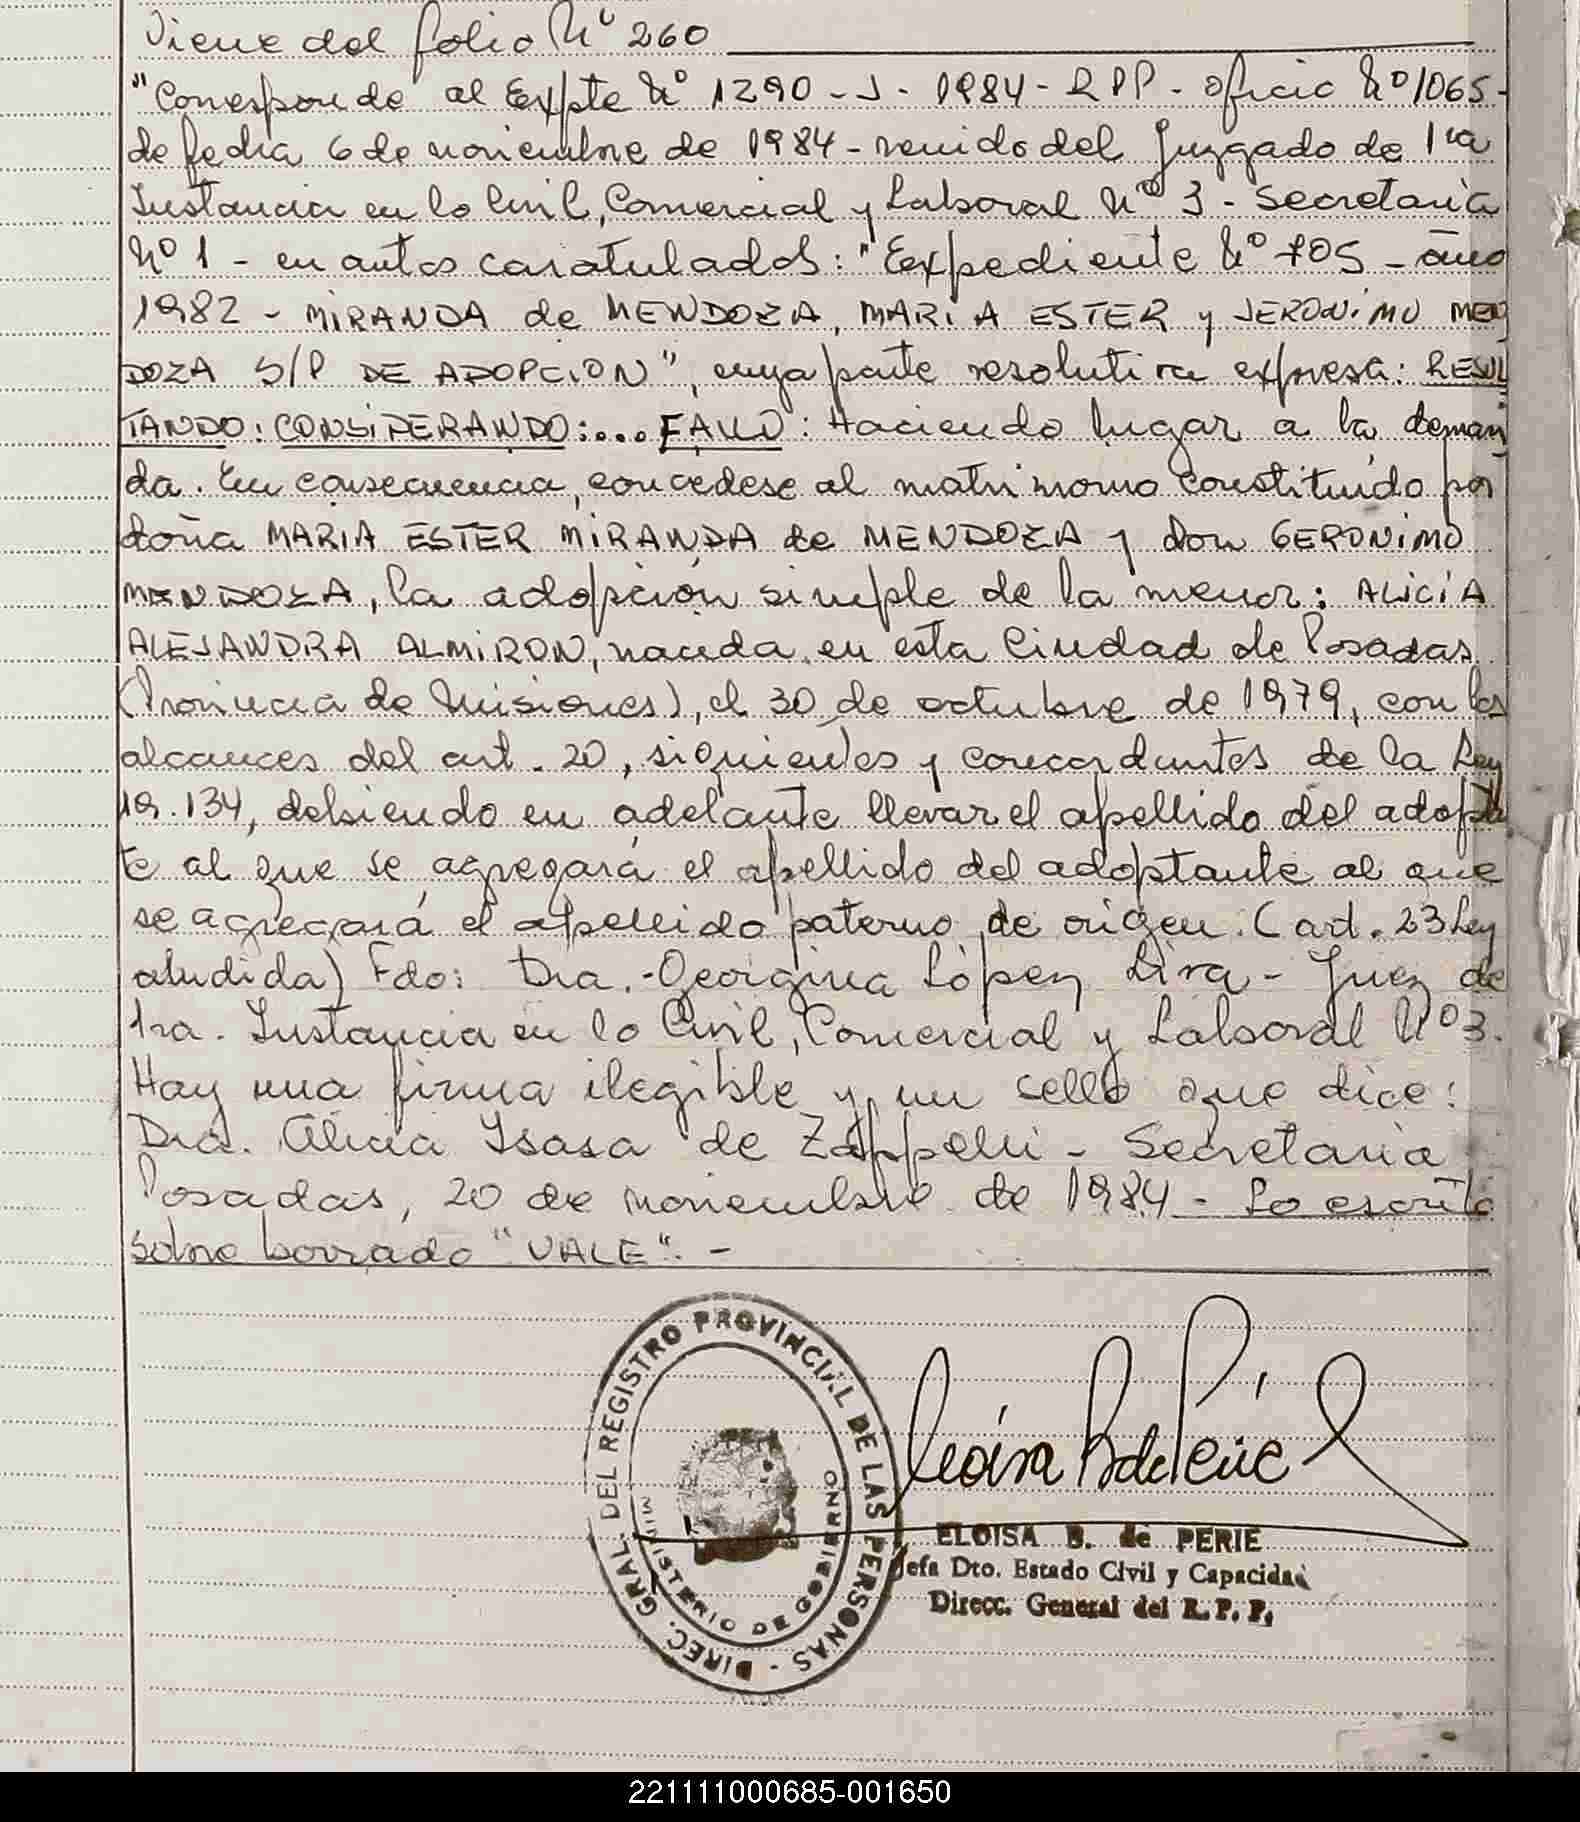 Viene del folio Nº 260
"Corresponde al Expte Nº 1290 - J - 1984 - RPP - oficio Nº 1065 -
de fecha 6 de noviembre de 1984 - venido del Juzgado de 1ra
Instancia en lo Civil, Comercial y Laboral Nº 3 - Secretaria
Nº 1 - en autos caratulados: "Expediente Nº 705 - año
1982 - MIRANDA de MENDOZA, MARIA ESTER y JERONIMO MEN
DOZA S/P DE ADOPCION", cuya parte resolutiva expresa: RESUL
TANDO: CONSIDERANDO:... FALLO: Haciendo lugar a la deman
da. En consecuencia, concedese al matrimonio constituído por
doña MARIA ESTER MIRANDA de MENDOZA y don GERONIMO
MENDOZA, la adopción simple de la menor: ALICIA
ALEJANDRA ALMIRON, nacida en esta Ciudad de Posadas
(Provincia de Misiones), el 30 de octubre de 1979, con los
alcances del art. 20, siguientes y concordantes de la Ley
19.134, debiendo en adelante llevar el apellido del adoptan
te al que se agregará el apellido del adoptante al que
se agregará el apellido paterno de origen. (art. 23 Ley
aludida) Fdo: Dra. Georgina López Lira - Juez de
1ra. Instancia en lo Civil, Comercial y Laboral Nº 3.
Hay una firma ilegible y un sello que dice:
Dra. Alicia Isasa de Zappelli - Secretaria
Posadas, 20 de noviembre de 1984 - Lo escrito
sobre borrado "VALE". -
DIREC. GRAL. DEL REGISTRO PROVINCIAL DE LAS PERSONAS -
MINISTERIO DE GOBIERNO
ELOISA B. de PERIE
Jefa Dto. Estado Civil y Capacidad
Direcc. General del R. P. P.
221111000685-001650